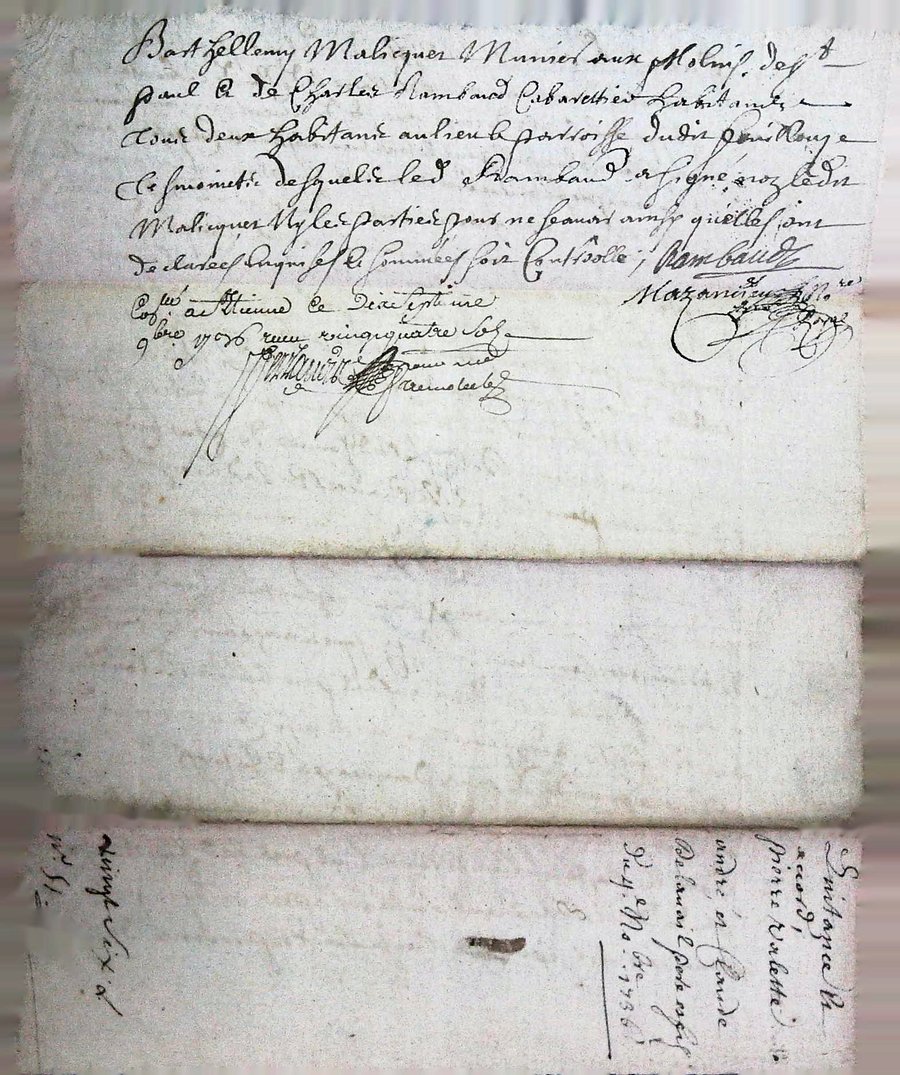 Barthellemy Malicquet Munier aux Molins de St
paul & de Charles Rambaud Cabarettier habitands
tous deux habitans au lieu & parroisse dudit
tesmointz desquelz led Rambaud a signé noz ledit
Malicquet Ny les parties pour ne sçavoir ainsy qu'elles ont
declarees Enquises & sommees soit Controlle, Rambaud
Mazandieu No re
Royal
Con. a Etienne ce Dixseptieme
9bre 1736 receu vingt quatre sols
Quitance &
accord,
pierre valette
andré et Claude
Delanail pere & fil
du 9e No.bre 1736
vingt six d
n° 51